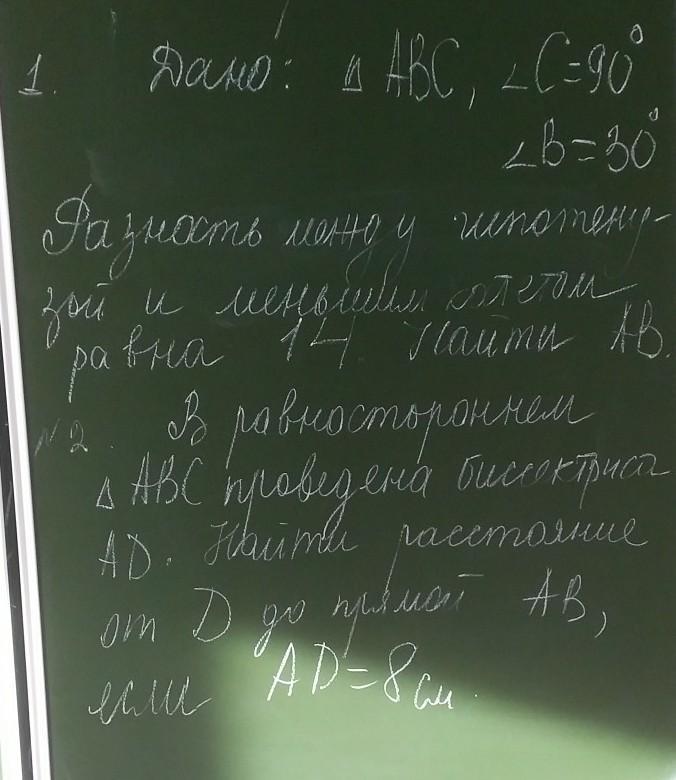 1. Дано: △ ABC, ∠C=90°
∠B=30°
Разность между гипотену-
зой и меньшим катетом
равна 14. Найти AB.
№2. В равностороннем
△ ABC проведена биссектриса
AD. Найти расстояние
от D до прямой AB,
если AD=8см.